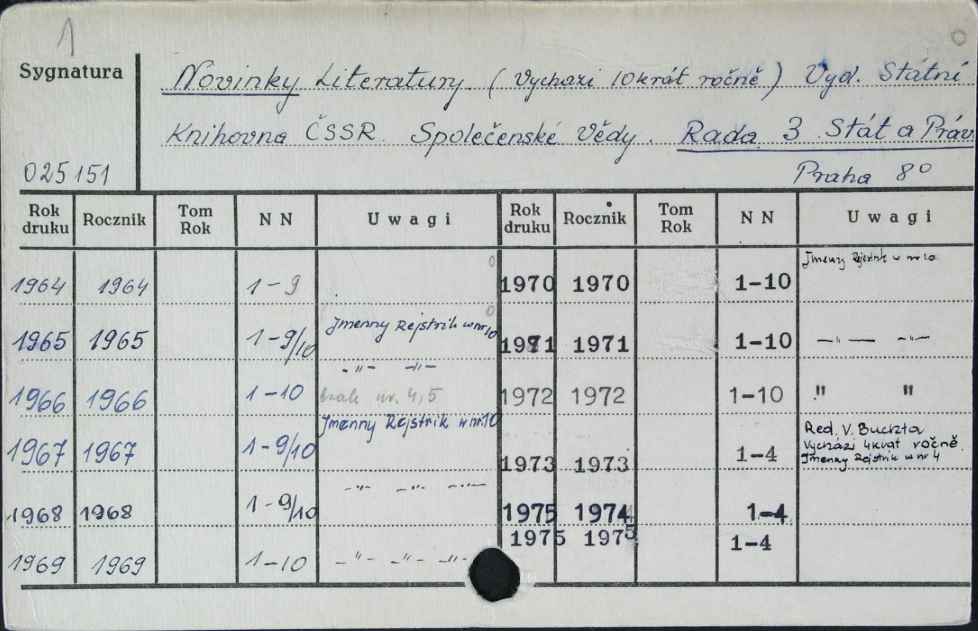 1
Sygnatura
025151
Novinky Literatury. (Vychazi 10 krát ročně) Vyd. Státní
Knihovna ČSSR. Společenské Vědy. Rada 3 Stát a Práv
Praha 8º
Rok druku Rocznik Tom Rok N N Uwagi Rok druku Rocznik Tom Rok N N Uwagi
1964 1964 1-9 1970 1970 1-10 Jmenny Rejstrik w nr 10
1965 1965 1-9/10 Jmenny Rejstrik w nr 10 1971 1971 1-10 —"— —"—
1966 1966 1-10 -"- -"- brak nr. 4,5 1972 1972 1-10 " "
1967 1967 1-9/10 Jmenny Rejstrik w nr 10 1973 1973 1-4 Red. V. Buchta
Vychází 4krat ročně.
Jmenny Rejstrik w nr 4
1968 1968 1-9/10 -"- -"- -"- 1975 1974 1-4
1969 1969 1-10 -"- -"- -"- 1975 1975 1-4